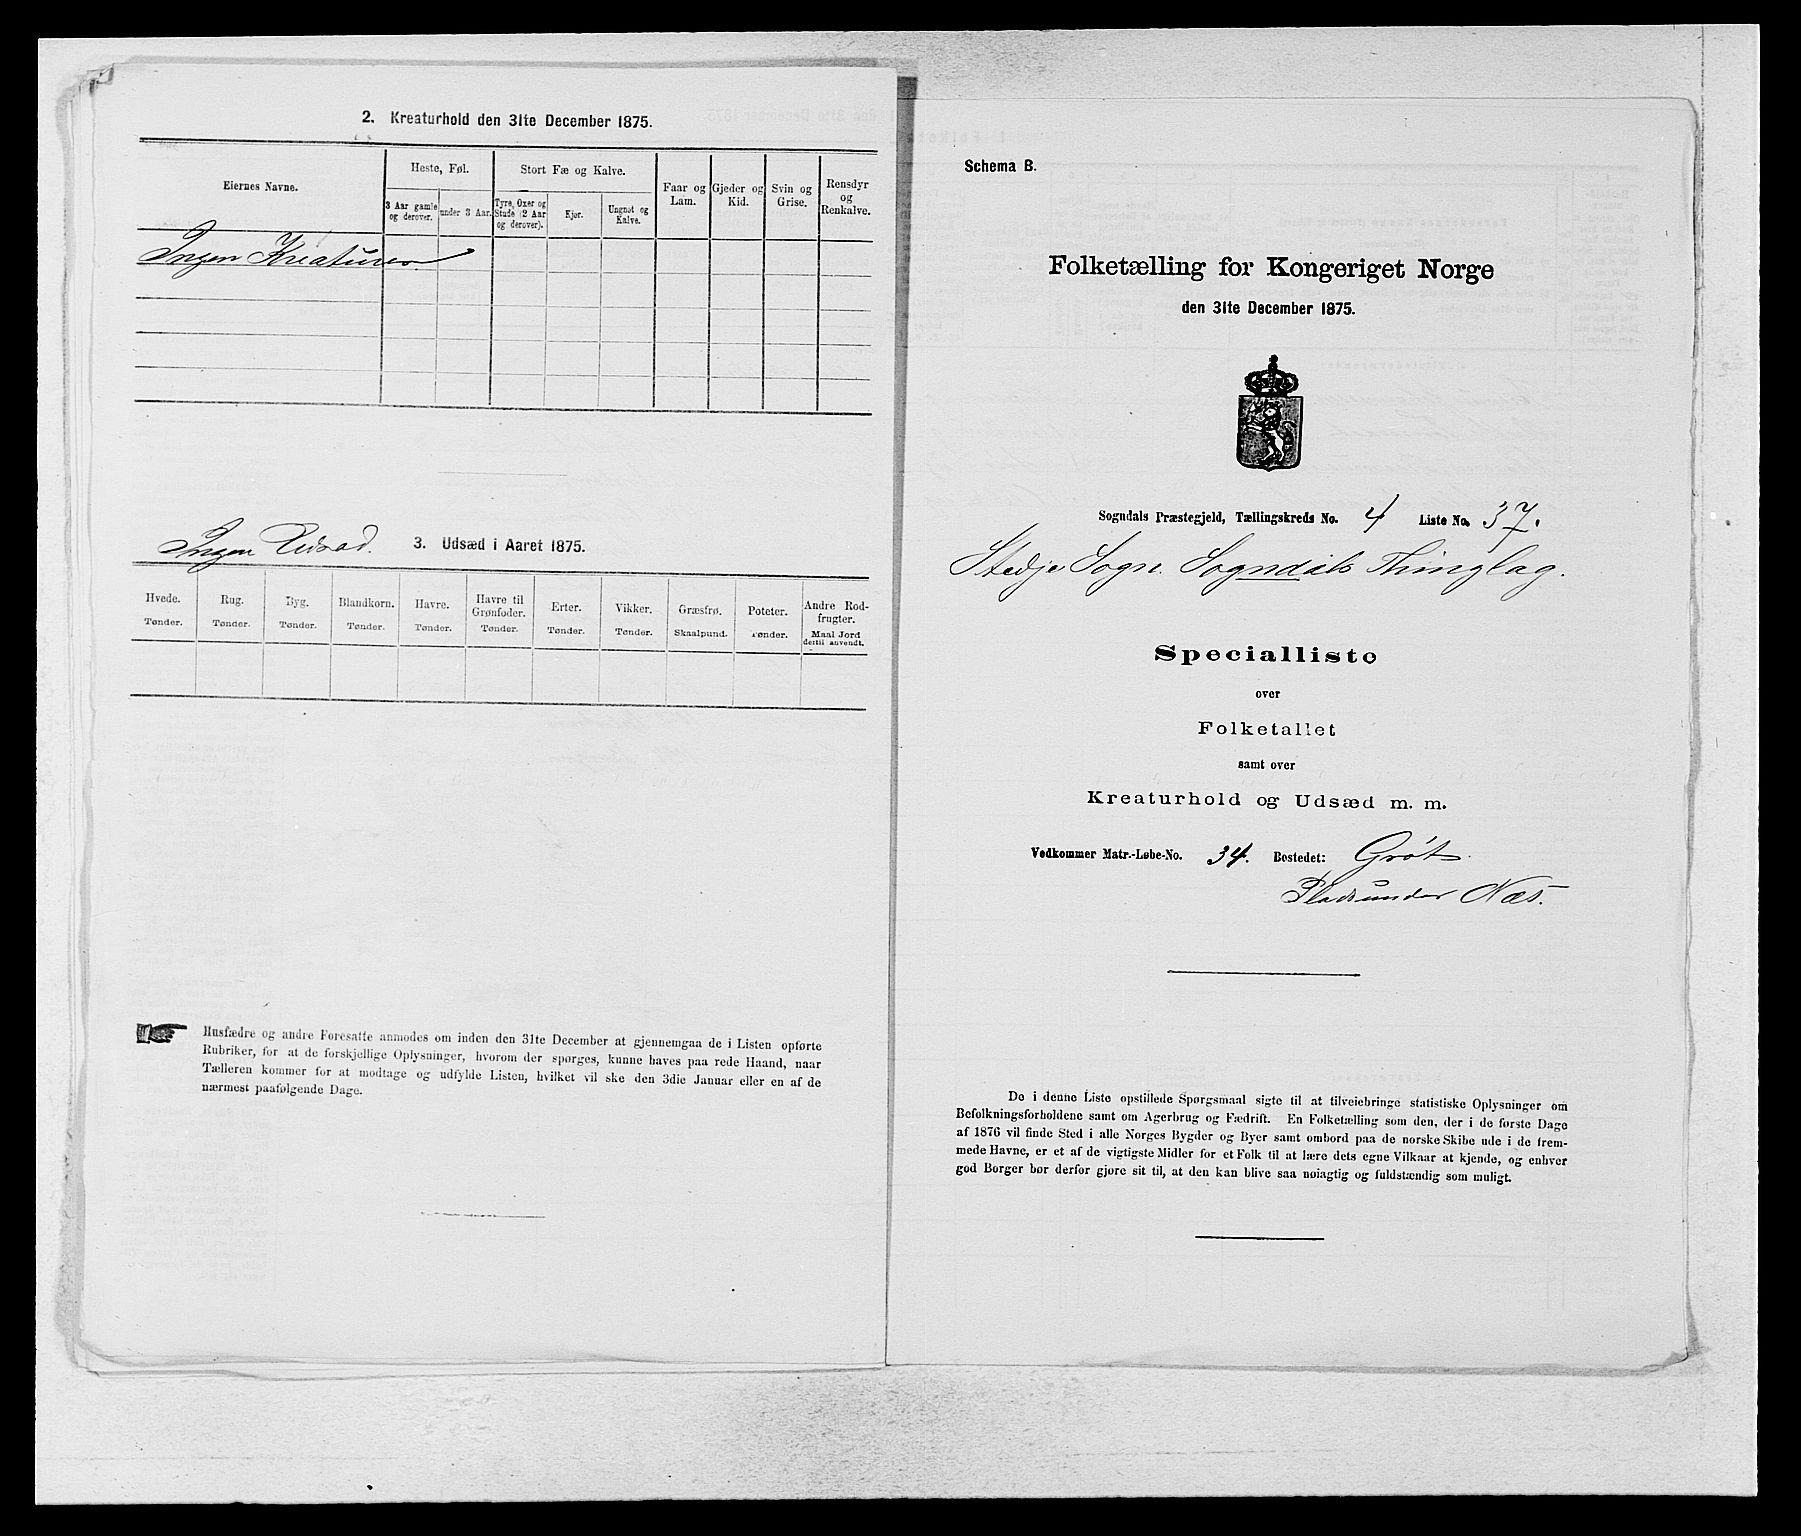 2. Kreaturhold den 31te December 1875.
Eiernes Navne.
Heste, Føl.
Stort Fæ og Kalve.
3 Aar gamle og derover.
under 3 Aar.
Tyre, Oxer og Stude (2 Aar og derover).
Kjør.
Ungnøt og Kalve.
Faar og Lam.
Gjeder og Kid.
Svin og Grise.
Rensdyr og Renkalve.
Ingen Kreaturer
Ingen Udsæd.
3. Udsæd i Aaret 1875.
Hvede. Tønder.
Rug. Tønder.
Byg. Tønder.
Blandkorn. Tønder.
Havre. Tønder.
Havre til Grønfoder. Tønder.
Erter. Tønder.
Vikker. Tønder.
Græsfrø. Skaalpund.
Poteter. Tønder.
Andre Rodfrugter. Maal Jord dertil anvendt.
Husfædre og andre Foresatte anmodes om inden den 31te December at gjennemgaa de i Listen opførte
Rubriker, for at de forskjellige Oplysninger, hvorom der spørges, kunne haves paa rede Haand, naar
Tælleren kommer for at modtage og udfylde Listen, hvilket vil ske den 3die Januar eller en af de
nærmest paafølgende Dage.
Schema B.
Folketælling for Kongeriget Norge
den 31te December 1875.
Sogndals Præstegjeld, Tællingskreds No. 4 Liste No. 37.
Stedje Sogn. Sogndals Thinglag.
Specialliste
over
Folketallet
samt over
Kreaturhold og Udsæd m. m.
Vedkommer Matr.-Løbe-No. 34. Bostedet: Grøt.
Plads under Næs.
De i denne Liste opstillede Spørgsmaal sigte til at tilveiebringe statistiske Oplysninger om
Befolkningsforholdene samt om Agerbrug og Fædrift. En Folketælling som den, der i de første Dage
af 1876 vil finde Sted i alle Norges Bygder og Byer samt ombord paa de norske Skibe ude i de frem-
mede Havne, er et af de vigtigste Midler for et Folk til at lære dets egne Vilkaar at kjende, og enhver
god Borger bør derfor gjøre sit til, at den kan blive saa nøiagtig og fuldstændig som muligt.